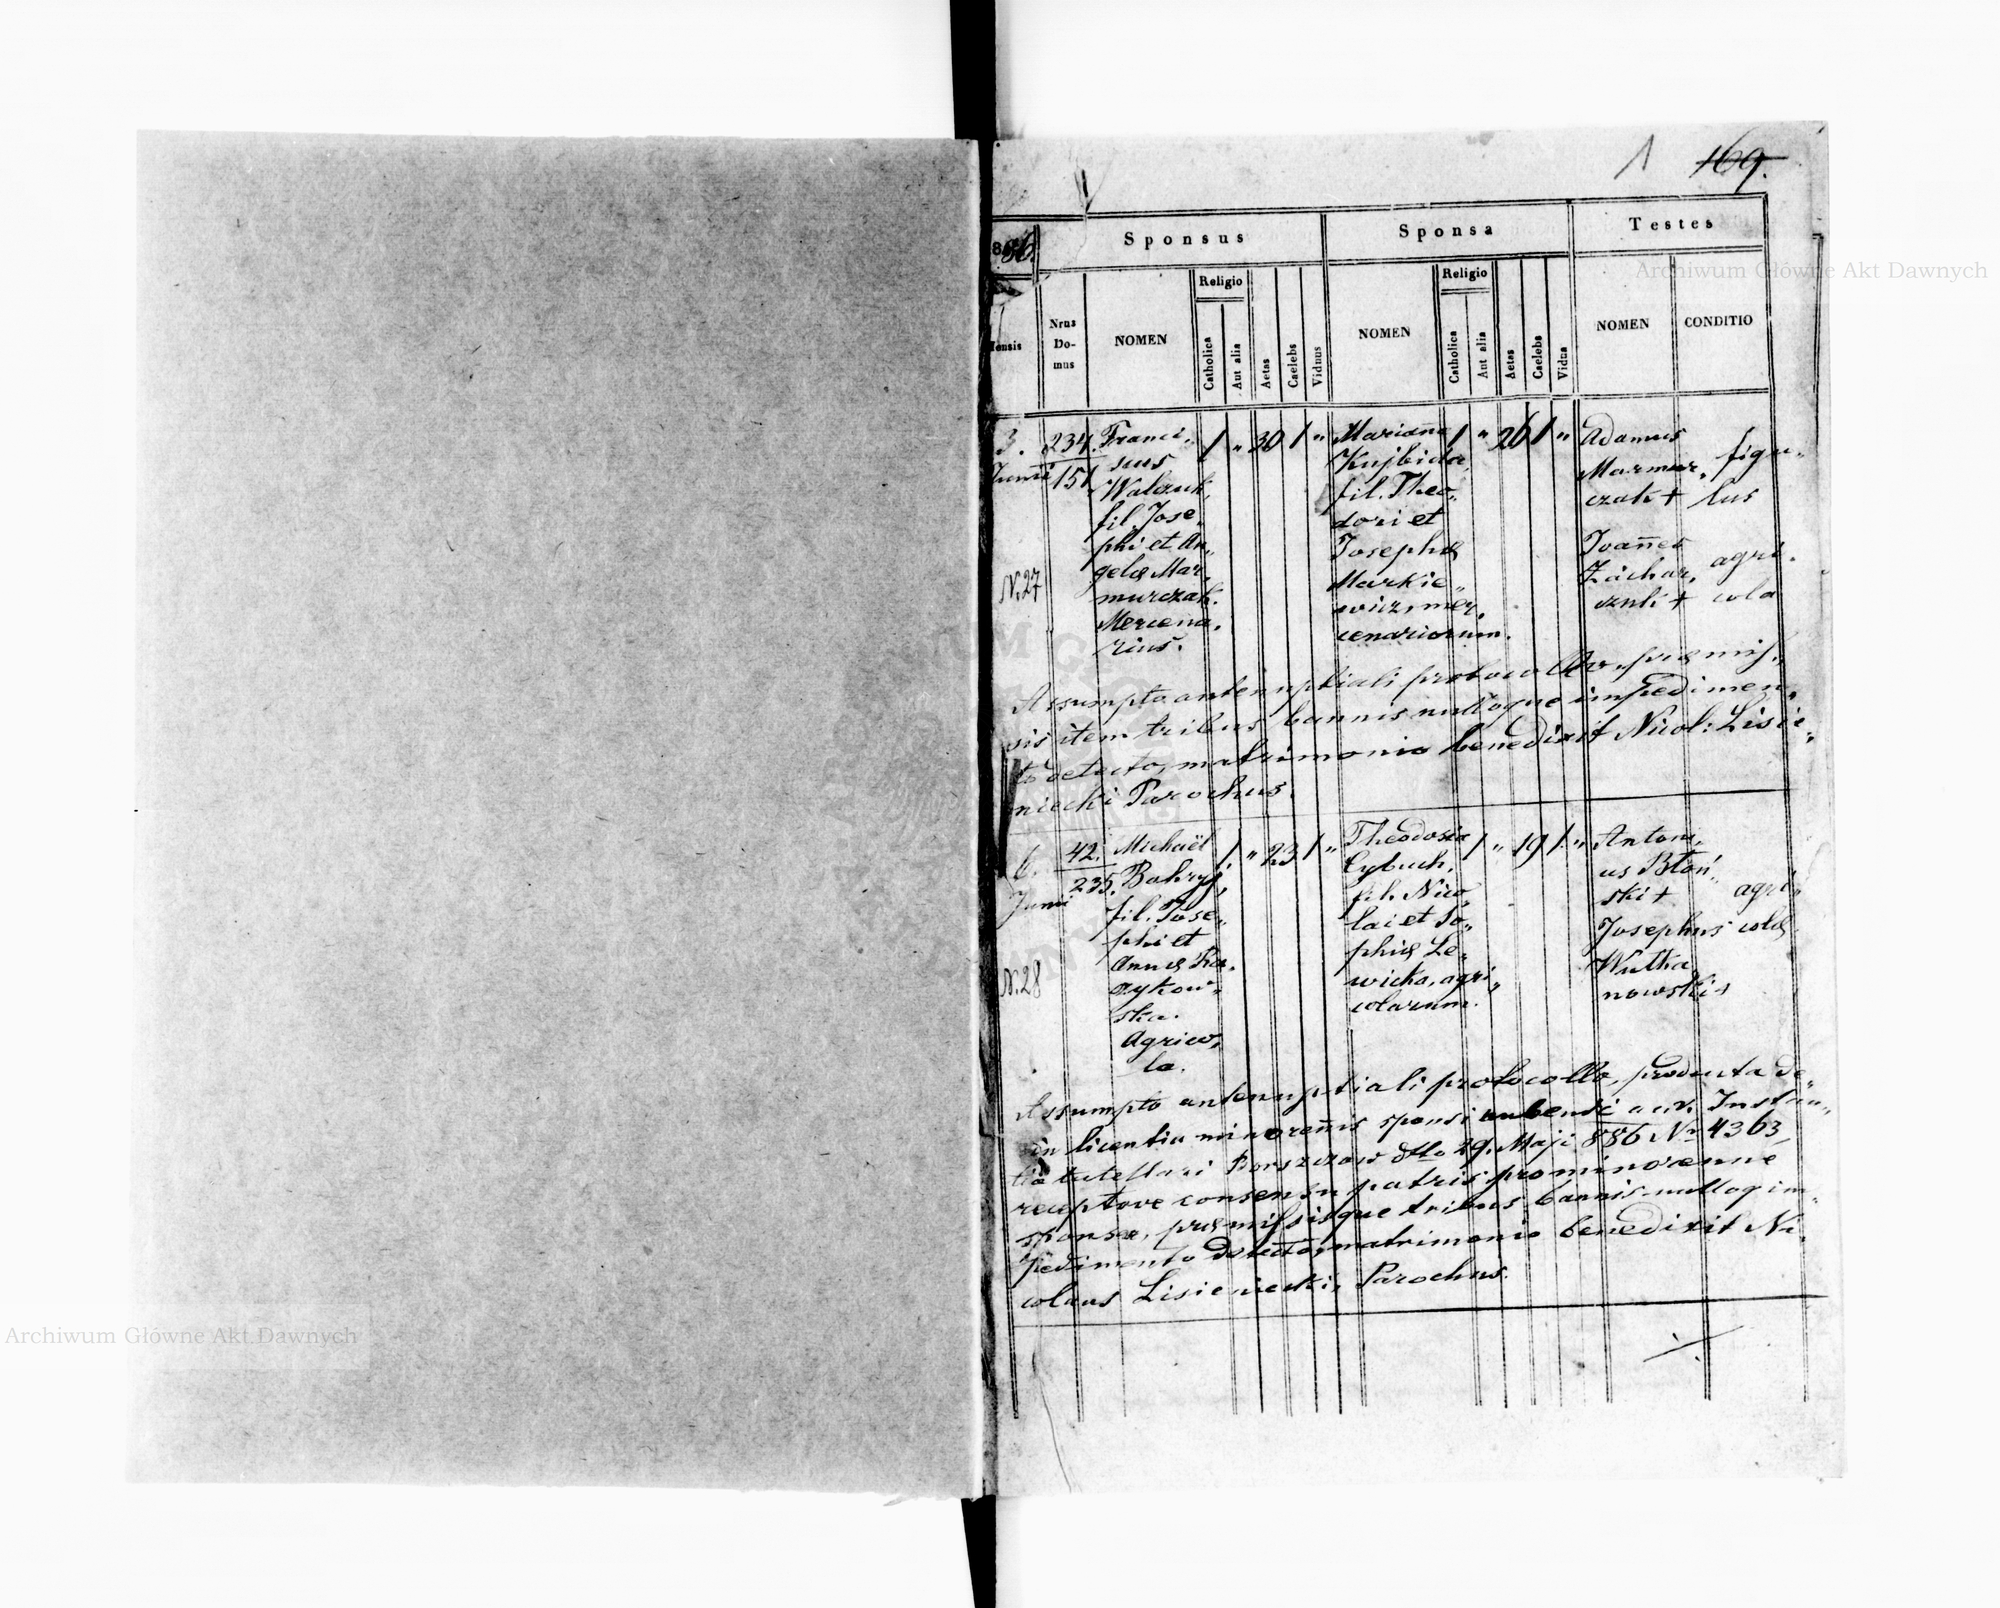 1 169.
Sponsus Sponsa Testes
86.
Religio Religio
Mensis Nrus Do- mus NOMEN Catholica Aut alia Aetas Caelebs Viduus NOMEN Catholica Aut alia Aetas Caelebs Vidua NOMEN CONDITIO
3. Junii 234. 151
N. 27
Franci„
scus
Walczuk,
fil. Jose„
phi et An„
gelæ Mar„
murczak.
Mercena„
rius.
1 „ 30 1 „
Marianna
Kujbida,
fil. Theo„
dori et
Josephæ
Markie„
wicz, mer„
cenariorum.
1 „ 26 1 „
Adamus
Marmur„
czak +
figu„
lus
Joannes
Zachar„
czuk +
agri„
cola
Assumpto antenuptiali protocollo, præmis„
sis item tribus bannis nulloque impedimen„
to detecto, matrimonio benedixit Nicol: Lisie„
niecki Parochus.
6. Junii 42. 235.
N. 28
Michaël
Bahryj,
fil. Jose„
phi et
Annæ
Agrico„
la.
1. „ 23 1 „
Theodosia
Cybuch,
fil. Nico„
lai et So„
phiæ Le„
wicka, agri„
colarum.
1 „ 19 1. „
Antoni„
us Błoń„
ski +
Josephus
Wutka„
nowski +
agri„
colæ
Assumpto antenuptiali protocollo, producta
licentia minorennis sponsi Instan„
tia tutellari Borszczow dtto 29. Maji 886 Nr 4363,
receptove consensu patris pro minorenne
sponsa, præmissisque tribus bannis nulloq im„
pedimento detecto, matrimonio benedixit Ni„
colaus Lisieniecki, Parochus.
Archiwum Główne Akt Dawnych
Archiwum Główne Akt Dawnych